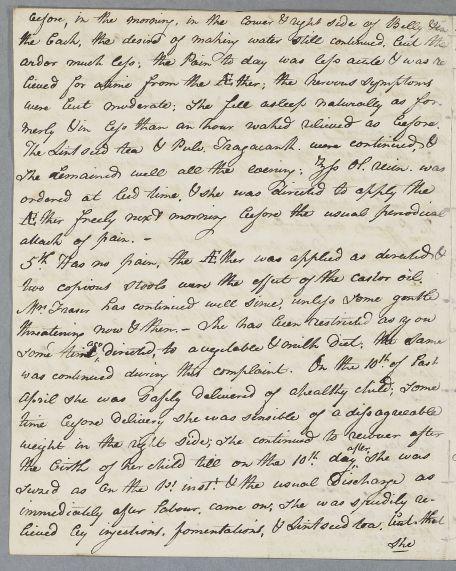 before, in the morning, in the lower & right side of Belly & in
the back, the desire of making water still continued, but the
ardor much less; the Pain to day was less acute & was re
lieved for a time from the Æther; the nervous symptoms
were but moderate; She fell asleep naturally as for-
merly & in less than an hour waked relieved as before.
The Lintseed tea & Pulv. Tragacanth. were continued, &
She remained well all the evening: ℥ss Ol. ricin. was
ordered at bed time, & she was directed to apply the
Æther freely next morning before the usual periodical
attack of pain. -
5th Has no pain, the Æther was applied as directed, &
two copious stools were the effect of the castor oil.
Mrs Fraser has continued well since, unless some gentle
threatening now & then. - She has been restricted as you
some time ago directed, to a vegetable & milk Diet; the same
was continued during this complaint. On the 10th of last
April she was safely delivered of a healthy child; some
time before delivery she was sensible of a disagreeable
weight in the right side; she continued to recover after
the birth of her child till on the 10th day after she was
seized as on the 1st inst. & the usual Discharge as
immediately after labour, came on, she was speedily re-
lieved by injections, fomentations, & Lintseed tea, but that
she